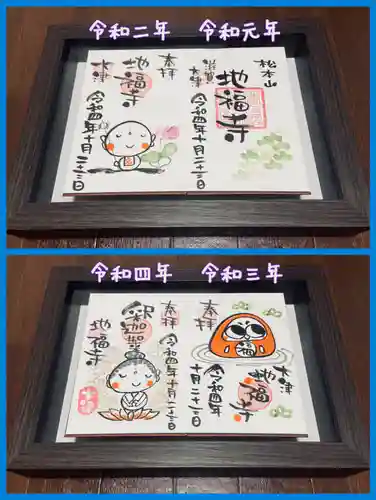 令和二年 令和元年
松本山
地福寺
滋賀
大津
令和四年十月二十三日
奉拝
地福寺
大津
令和四年十月二十三日
令和四年 令和三年
奉拝
福
大津
地福寺
令和四年
十月二十三日
奉拝
令和四年十月二十三日
釈迦如来
地福寺